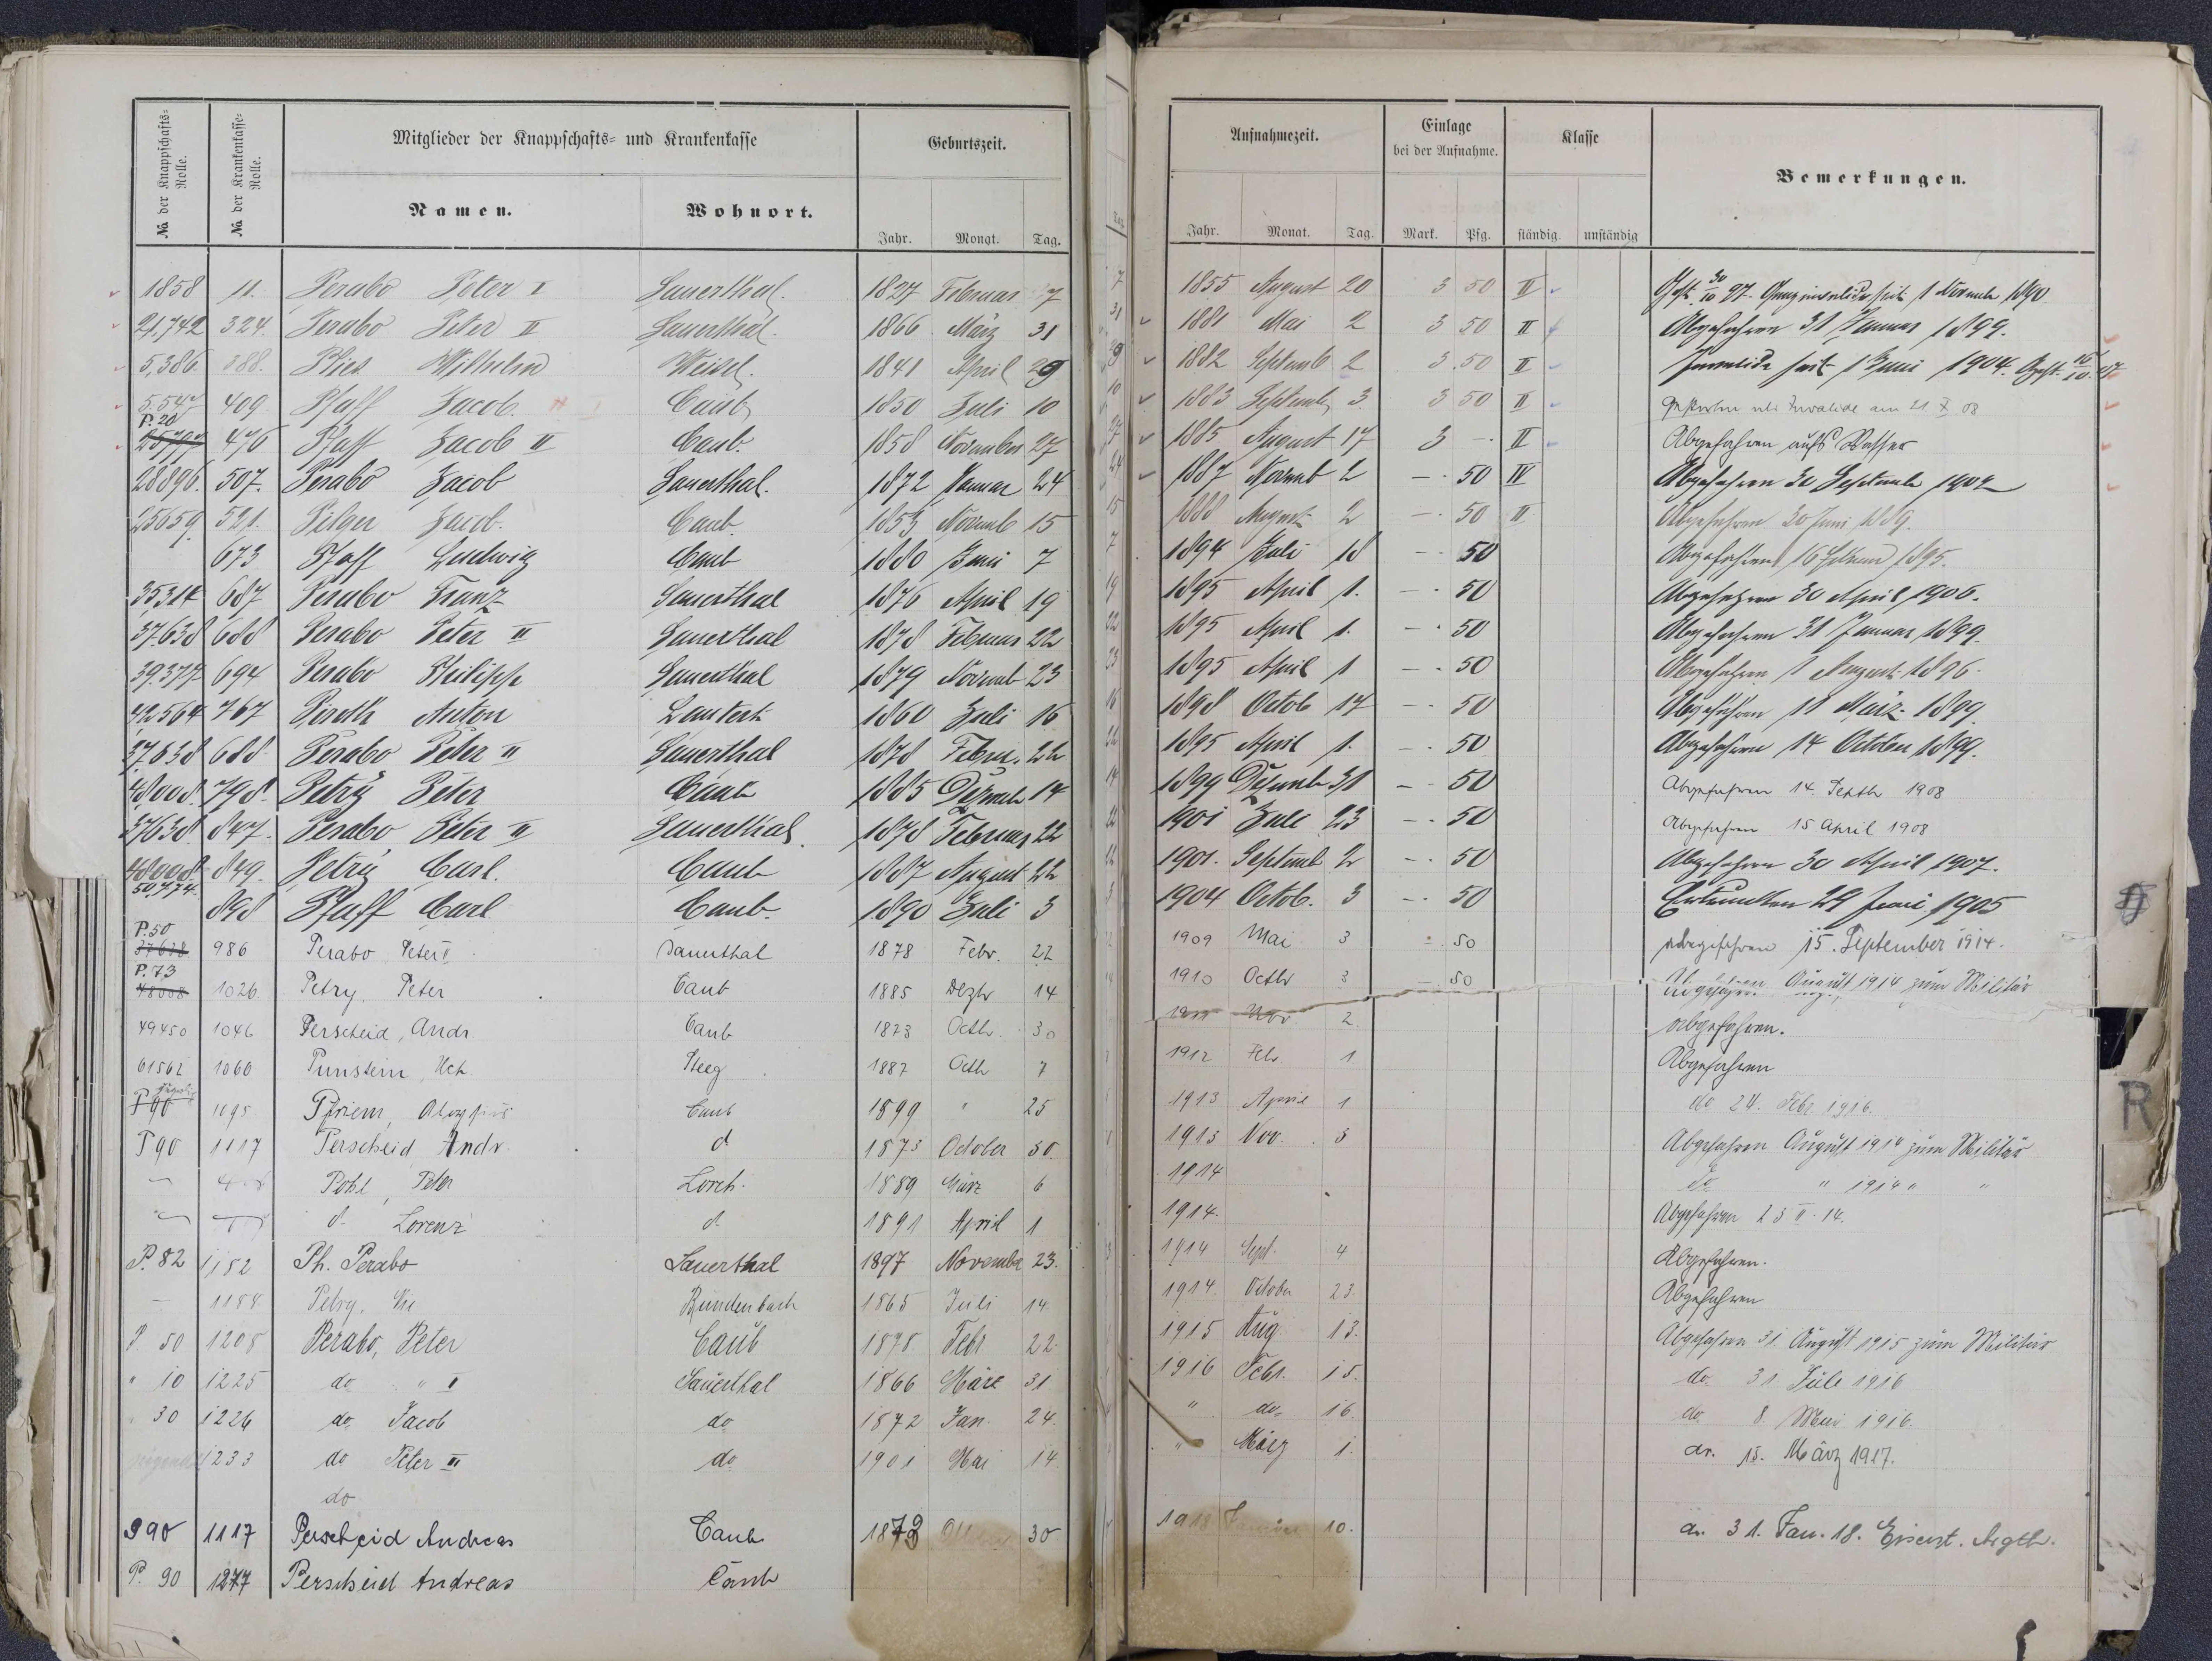 No. der Knappschafts-Rolle.
No. der Krankenkasse-Rolle.
Mitglieder der Knappschafts- und Krankenkasse
Namen.
Wohnort.
Geburtszeit.
Jahr. Monat. Tag.
Aufnahmezeit.
Jahr. Monat. Tag.
Einlage bei der Aufnahme.
Mark. Pfg.
Klasse
ständig unständig
Bemerkungen.
1858 11. Perabo Peter I Sauerthal. 1827 Februar 7 1855 August 20 3 50 II Gest. 30/10 97. Ganzinvalide seit 1 Novemb 1890
21,742 324. Perabo Peter II Sauerthal. 1866 März 31 1881 Mai 2 3 50 II Abgefahren 31 Januar 1899.
5,386. 388. Plies Wilhelm Weisel. 1841 April 29 1882 Septemb 2 3.50 II Invalide seit 1 Juni 1904. Gest. 16/10. 07
409 Pfaff Jacob. Caub 1850 Juli 10 1883 Septemb 3 3 50 II Gestorben als Invalide am 21 X 08
P. 20 476 Pfaff Jacob II Caub. 1858 November 27 1885 August 17 3 - II Abgefahren aufs Wasser
28896. 507. Perabo Jacob Sauerthal. 1872 Januar 24 1887 Novemb 2 - 50 IV Abgefahren 30 Septemb 1902
25659. 521. Pilger Jacob. Caub. 1853 Novemb 15 1888 August 2 - 50 II Abgefahren 30 Juni 1889.
673 Pfaff Ludwig Caub 1880 Juni 7 1894 Juli 18 - 50 Abgefahren 16 Februar 1895.
35,314 687 Perabo Franz Sauerthal 1876 April 19 1895 April 1. - 50 Abgefahren 30 April 1906.
37.638 688 Perabo Peter II Sauerthal 1878 Februar 22 1895 April 1. - 50 Abgefahren 31 Januar 1899.
39.377 694 Perabo Philipp Sauerthal 1879 Novemb 23 1895 April 1 - 50 Abgefahren 1 August 1896.
42564 767 Piroth Anton Lautert 1860 Juli 16 1898 Octob 17 - 50 Abgefahren 11 März 1899.
37638 688 Perabo Peter II Sauerthal 1878 Febru. 22 1895 April 1. - 50 Abgefahren 14 October 1899.
48008. 798. Petry Peter Caub 1885 Dezemb 14 1899 Dezemb 31 - 50 Abgefahren 14. Septbr 1908
37638. 847. Perabo Peter II Sauerthal. 1878 Februar 22 1901 Juli 23 - 50 Abgefahren 15 April 1908
48008. 50,774. 849. Petry Carl. Caub 1887 August 22 1901. Septemb 2 - 50 Abgefahren 30 April 1907.
898 Pfaff Carl Caub. 1890 Juli 3 1904 Octob. 3 - 50 Ertrunken 29 Juni 1905
P. 50 37638 986 Perabo Peter II Sauerthal 1878 Febr. 22 1909 Mai 3 - 50 abgefahren 15. September 1914.
P. 73 48008 1026 Petry, Peter Caub 1885 Dezbr 14 1910 Octbr 3 - 50 Abgefahren August 1914 zum Militär
49450 1046 Perscheid, Andr. Caub 1873 Octbr. 30 1911 Nov 2. abgefahren.
61562 1060 Punstein, Hch Steeg 1887 Octb 7 1912 Feb. 1 Abgefahren
P 90 1095 Pfriem, Caub 1899 " 25 1913 April 1 do 24. Febr 1916.
P 90 1117 Perscheid Andr. d 1873 October 30. 1913 Nov. 3 Abgefahren August 1914 zum Militär
Pohl, Peter Lorch. 1889 März 6 1914 do " 1914 " "
d. Lorenz d. 1891 April 1 1914. Abgefahren 23. II. 14.
P. 82 1182 Ph. Perabo Sauerthal 1897 November 23. 1914 Sept. 4 Abgefahren.
- 1184 Petry, Bundenbach 1865 Juli 14. 1914. October 23. Abgefahren
P. 50 1208 Perabo, Peter Caub 1878. Febr. 22. 1915 Aug. 13. Abgefahren 31. August 1915 zum Militär
" 10 1225 do " II Sauerthal 1866 März 31 1916 Febr. 15. do. 31 Juli 1916
" 30 1226 do Jacob do 1872 Jan. 24. " do. 16. do. 8. Mai 1916.
1233 do Peter III do 1901 Mai 14. " März 1. do. 15. März 1917.
do
P 90 1117 Perscheid Andreas Caub 1873 30 1918 Januar 10. do. 31. Jan. 18.
P. 90 1277 Perscheid Andreas Caub
R